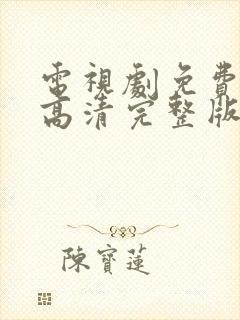 電視劇免費
高清完整版
陳寶蓮